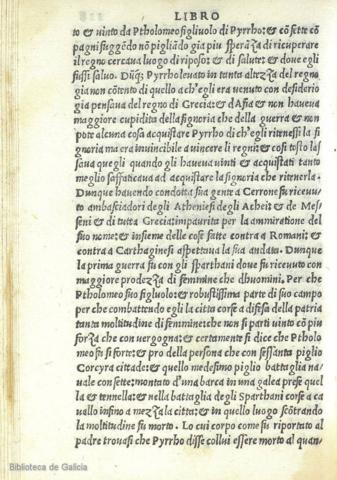 LIBRO
to & vinto da Ptholomeo figliuolo di Pyrrho: & cõ sette cõ
pagni fuggẽdo nõ pigliãdo gia piu sperãza di ricuperare
il regno cercava luogo di riposo: & di salute: & doue egli
fussi saluo. Dũq; Pyrrho leuato in tanta altezza del regno
gia non cõtento di quello a ch'egli era venuto con desiderio
gia pensaua del regno di Grecia: & d'Asia & non haueua
maggiore cupidita della signoria che della guerra & non
pote alcuna cosa acquistare Pyrrho di ch'egli ritenessi la si
gnoria ma era inuincibile a vincere li regni: & cosi tosto las
saua quegli quando gli haueua vinti & acquistati tanto
meglio saffaticaua ad acquistare la signoria che ritenerla.
Dunque hauendo condotta sua gente a Cerrone su riceuu
to ambasciadori degli Atheniesi degli Achei: & de Mes-
seni & di tutta Grecia: impaurita per la ammiratione del
suo nome: & insieme delle cose fatte contra a Romani: &
contra a Carthaginesi aspettaua la sua andata. Dunque
la prima guerra fu con gli sparthani doue fu riceuuto con
maggiore prodezza di femmine che dhuomini. Per che
Ptholomeo suo figluolo: & robustissima parte di suo campo
per che combattendo egli la citta corse a difesa della patria
tanta moltitudine di femmine: che non si parti vinto cõ piu
forza che con vergogna: & certamente si dice che Ptholo
meo fu si forte: & pro della persona che con sessanta piglio
Corcyra cittade: & quello medesimo piglio battaglia na-
uale con sette: montato d'una barca in una galea prese quel
la & tennella: & nella battaglia degli Sparthani corse a ca
uallo insino a mezza la citta: & in quello luogo scõtrando
la moltitudine fu morto. Lo cui corpo come fu riportato al
padre trouasi che Pyrrho disse collui essere morto al quan/
Biblioteca de Galicia